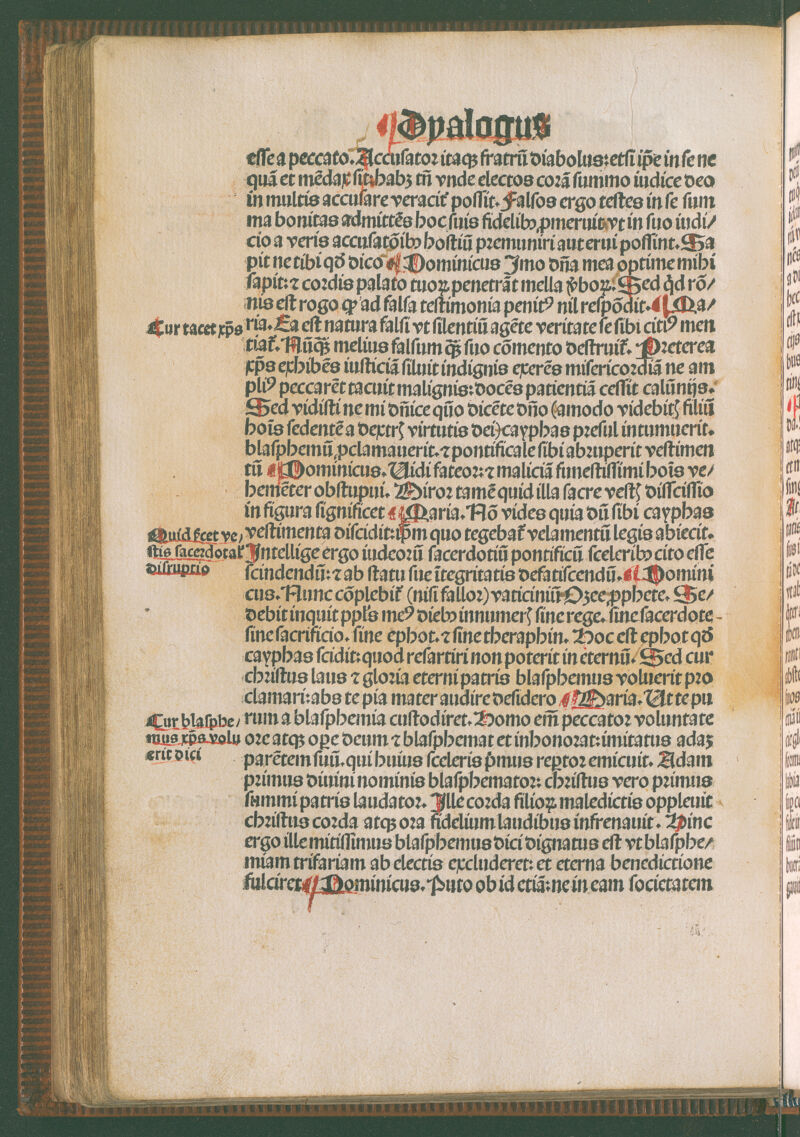 ¶ Dyalogus
esse a peccato. Accusator itaqꝫ fratrū diabolus: etsi ip̄e in se ne
quā et mēdax sit: habꝫ tn̄ vnde electos corā summo iudice deo
in multis accusare veracit᷑ possit. Falsos ergo testes in se sum
ma bonitas admittēs hoc suis fidelibꝰ ꝓmeruit, vt in suo iudi/
cio a veris accusatōibꝰ hostiū premuniri aut erui possint. Sa
pit ne tibi qđ dico ¶ Dominicus Imo dn̄a mea optime mihi
sapit: ⁊ cordis palato tuoꝝ penetrāt mella v̓boꝝ. Sed qͥd rō/
nis est rogo ꝙ ad falsa testimonia penitꝰ nil respōdit. ¶ Ma/
Cur tacet xp̄s
ria. Ea est natura falsi vt silentiū agēte veritate se sibi citiꝰ men
tiat᷑. Nūqꝫ melius falsum qꝫ suo cōmento destruit᷑. Preterea
xp̄s exhibēs iusticiā siluit indignis exerēs misericordiā ne am
pliꝰ peccarēt tacuit malignis: docēs patientiā cessit calūnijs.
Sed vidisti ne mi dn̄ice qn̄o dicēte dn̄o (amodo videbitꝭ filiū
hoīs sedentē a dextrꝭ virtutis dei) cayphas presul intumuerit.
blasphemū ꝓclamauerit. ⁊ pontificale sibi abruperit vestimen
tū ¶ Dominicus. Uidi fateor: ⁊ maliciā funestissimi hoīs ve/
hemēter obstupui. Miror tamē quid illa sacre vestꝭ disscissio
in figura significet ¶ Maria. Nō vides quia dū sibi cayphas
Quid fecet ve/
stis sacerdotal᷑
disruptio
vestimenta discidit: ip̄m quo tegebat᷑ velamentū legis abiecit.
Intellige ergo iudeorū sacerdotiū pontificū sceleribꝰ cito esse
scindendū: ⁊ ab statu sue ītegritatis defatiscendū. ¶ Domini
cus. Nunc cōplebit᷑ (nisi fallor) vaticiniū Ozee ꝓphete. Se/
debit inquit pp̄ls meꝰ diebꝰ innumerꝭ sine rege. sine sacerdote
sine sacrificio. sine ephot. ⁊ sine theraphin. Hoc est ephot qđ
cayphas scidit: quod resartiri non poterit in eternū. Sed cur
christus laus ⁊ gloria eterni patris blasphemus voluerit pro
clamari: abs te pia mater audire desidero ¶ Maria. Ut te pu
Cur blasphe/
mus xp̄s volu
erit dici
rum a blasphemia custodiret. Homo em̄ peccator voluntate
ore atqꝫ oꝑe deum ⁊ blasphemat et inhonorat: imitatus adaꝫ
parētem suū. qui huius sceleris p̓mus reptor emicuit. Adam
primus diuini nominis blasphemator: christus vero primus
summi patris laudator. Ille corda filioꝝ maledictis oppleuit
christus corda atqꝫ ora fidelium laudibus infrenauit. Hinc
ergo ille mitissimus blasphemus dici dignatus est vt blasphe/
miam trifariam ab electis excluderet: et eterna benedictione
fulciret ¶ Dominicus. Puto ob id etiā: ne in eam societatem